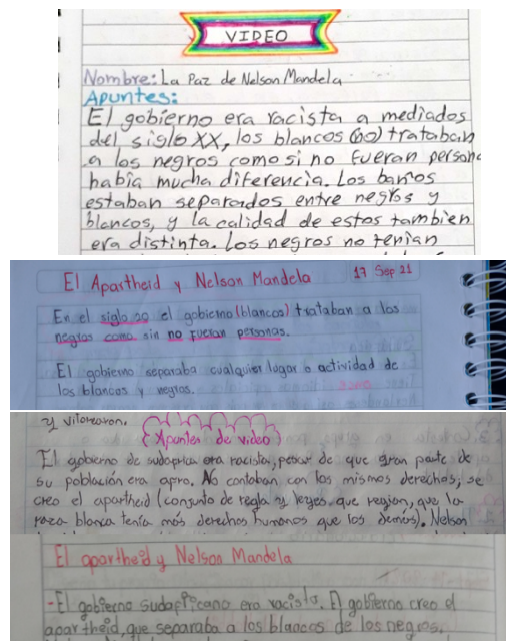 VIDEO
Nombre: La Paz de Nelson Mandela
Apuntes:
El gobierno era racista a mediados
del siglo XX, los blancos (no) trataban
a los negros como si no fueran person
había mucha diferencia. Los baños
estaban separados entre negros y
blancos, y la calidad de estos tambien
era distinta. Los negros no tenían
El Apartheid y Nelson Mandela 17 Sep 21
En el siglo 20 el gobierno (blancos) trataban a los
negros como sin no fueran personas.
El gobierno separaba cualquier lugar o actividad de
los blancos y negros.
y vitorearon.
Apuntes de video
El gobierno de sudáfrica era racista, pesar de que gran parte de
su población era afro. No contaban con los mismos derechos, se
creo el apartheid (conjunto de regla y leyes que regian, que la
raza blanca tenía más derechos humanos que los demás). Nelson
El apartheid y Nelson Mandela
-El gobierno sudafricano era racista. El gobierno creo el
apartheid, que separaba a los blancos de los negros.